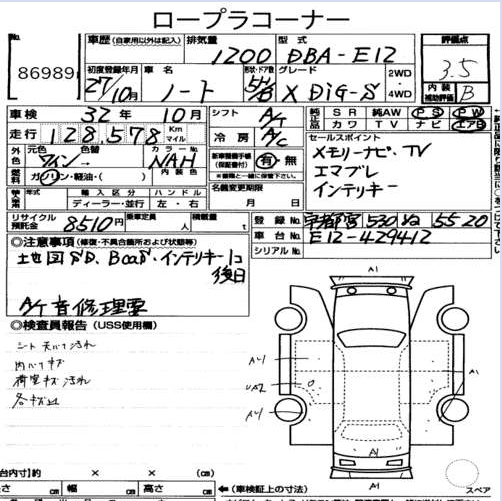 ロープラコーナー
No.
86989
車歴 (自家用以外は記入)
排気量
1200
型式
DBA-E12
評価点
3.5
初度登録年月
27/10月
車名
ノート
形状・ドア数
5/B
グレード
X DiG-S
2WD・4WD
内装補助評価
B
車検 32年 10月
シフト
A/T
純正品
SR 純AW PS PW
カワ TV ナビ エアB
走行 128,578 Km マイル
冷房
A/C
セールスポイント
メモリーナビ、TV
エマブレ
インテリキー
外色
元色
ワイン
色替
カラーNo.
NAH
燃料
ガソリン・軽油・( )
内装色
新車整備手帳(保証書付)
有・無
※車輌と一緒に保管下さい
名義変更期限
月 日
輸入車
年式
輸入区分
ディーラー・並行
ハンドル
左・右
リサイクル預託金
8510円
乗車定員
人
積載量
t
登録No.
宇都宮 530 ぬ 5520
車台No.
E12-429412
シリアルNo.
◎注意事項 (修復・不具合箇所および状態等)
土地図SD、Boas・インテリキー1コ
後日
A/T音修理要
◎検査員報告 (USS使用欄)
シート 天バリ汚れ
内バリキズ
荷室キズ汚れ
A1
A1
A1
A1
A1
スペア
台内寸)約 × × (cm)
さ cm 幅 cm 高さ cm
(車検証上の寸法)